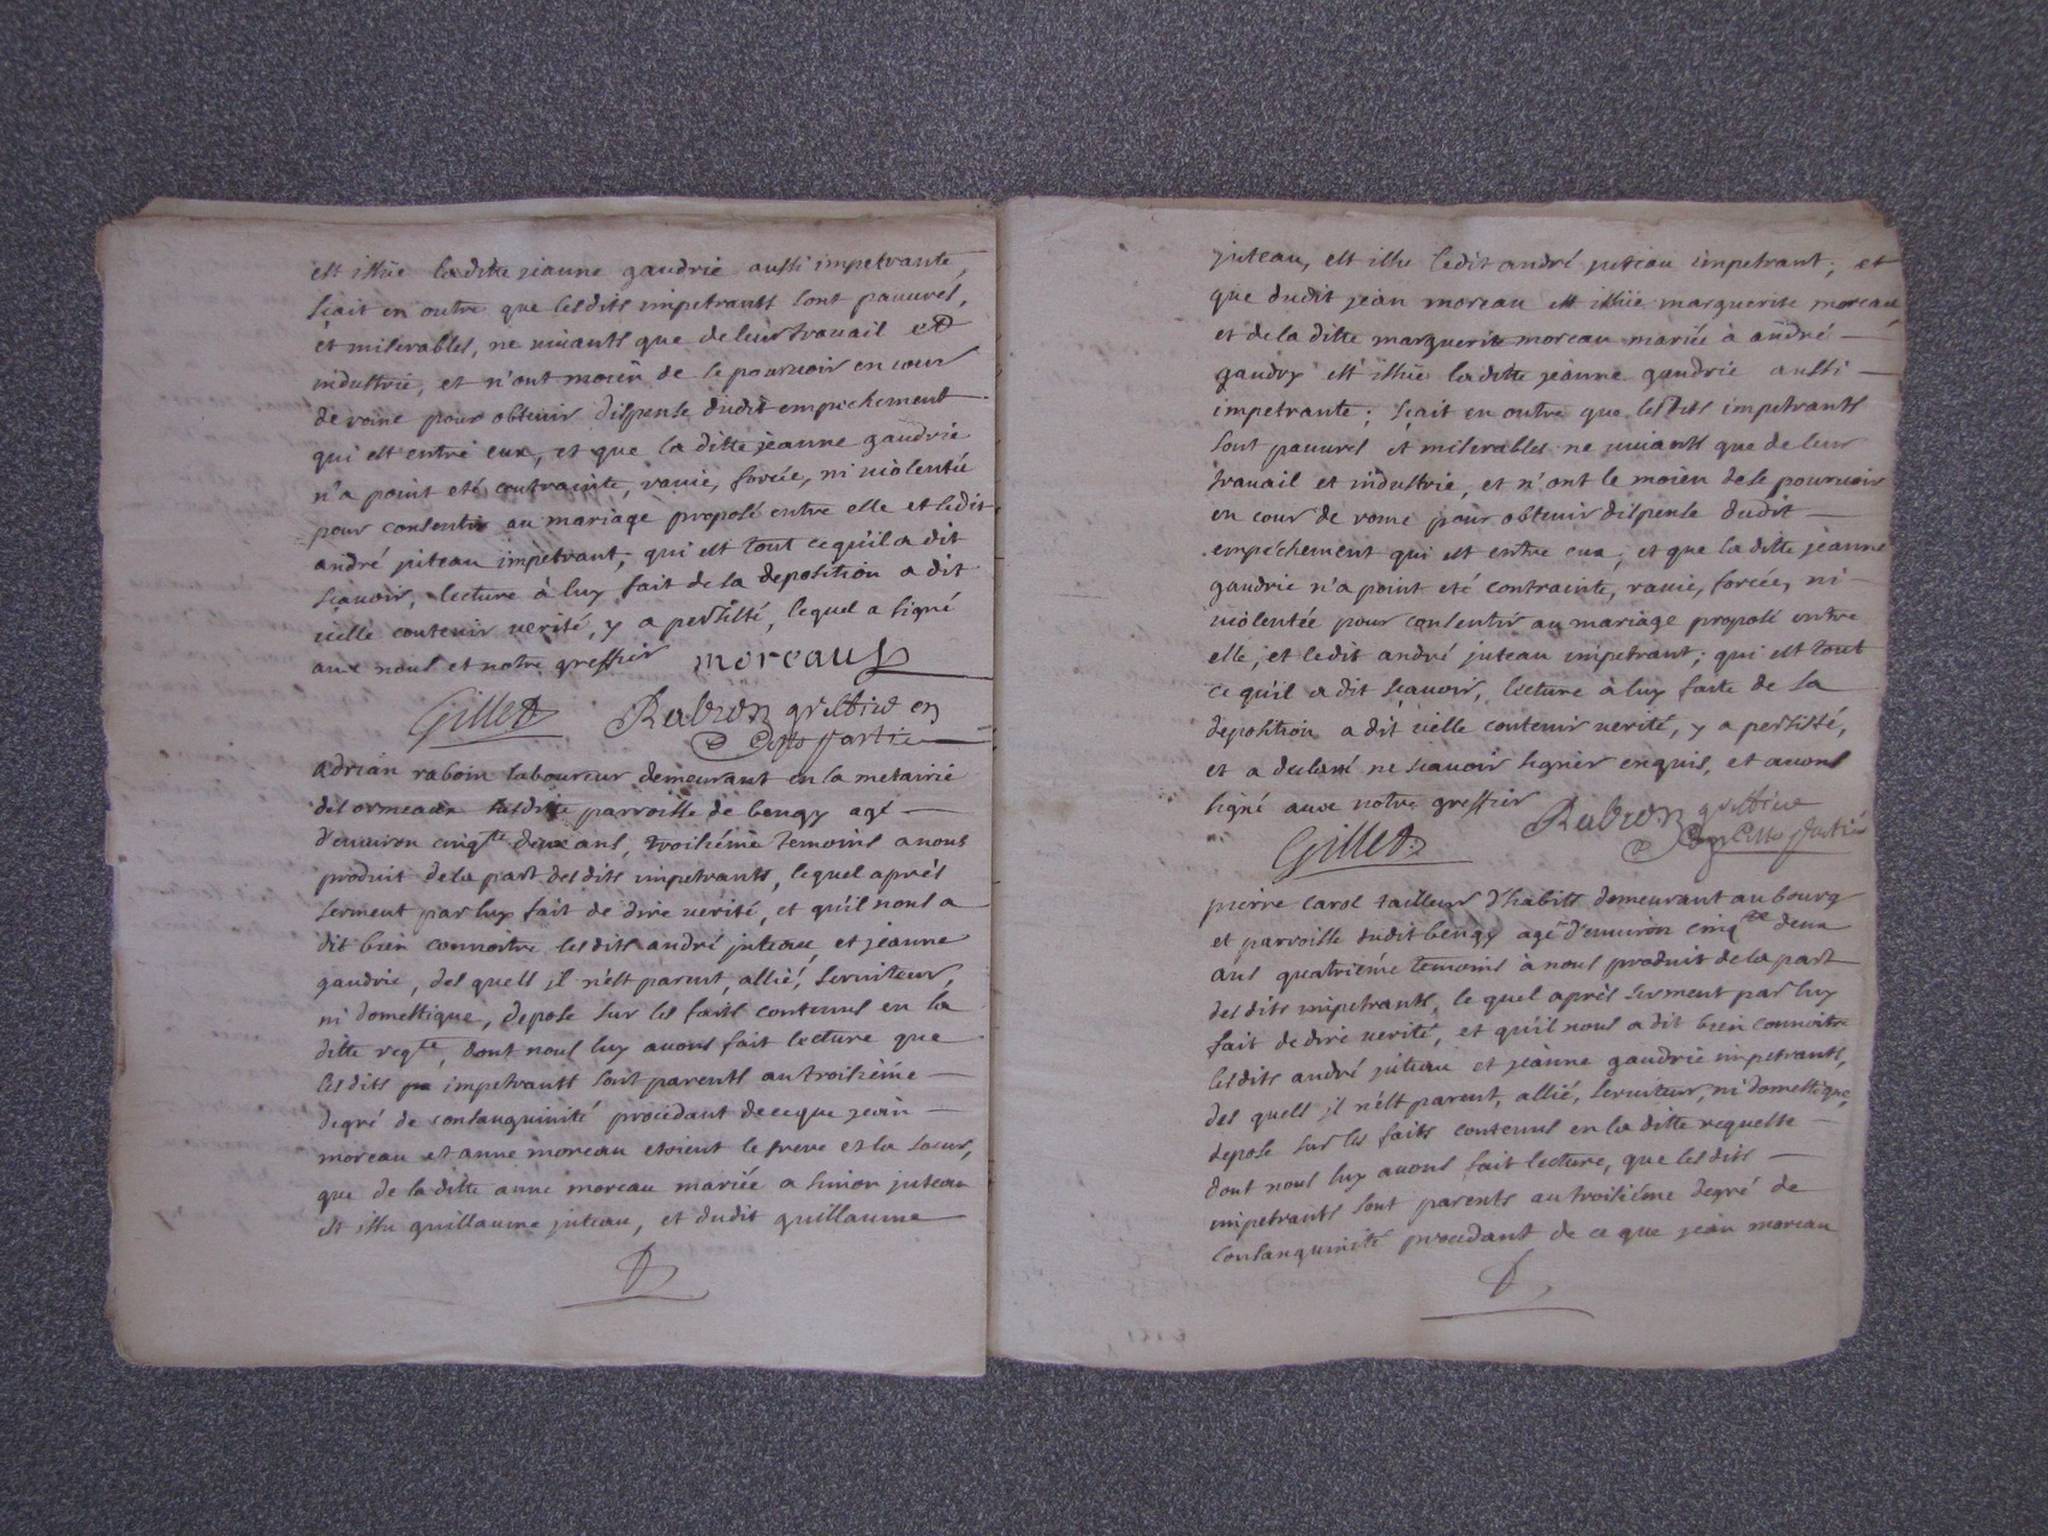 est issüe ladite jeanne gaudrie aussi impetrante,
scait en outre que lesdits impetrants sont pauures,
et miserables, ne uiuants que de leur trauail et
industrie, et n'ont moien de se pouruoir en cour
de rome pour obtenir dispense dudit empechement
qui est entre eux, et que la ditte jeanne gaudrie
n'a point eté contrainte, rauie, forcée, ni uiolentée
pour consentir au mariage proposé entre elle et ledit
andré juteau impetrant, qui est tout ce qu'il a dit
scauoir, lecture à luy fait de sa deposition a dit
icelle contenir uerité, y a persisté, lequel a signé
auec nous et notre greffier moreau
Gillet Rabion greffier en
cette partie
adrian raboin laboureur demeurant en la metairie
des ormeaux susditte parroisse de bengy agé
d'enuiron cinqte deux ans, troisiéme temoins a nous
produit de la part des dits impetrants, lequel aprés
serment par luy fait de dire uerité, et qu'il nous a
dit bien connoitre lesdits andré juteau, et jeanne
gaudrie, des quels il n'est parent, allié, seruiteur,
ni domestique, depose sur les faits contenus en la
ditte reqte, dont nous luy auons fait lecture que
lesdits impetrants sont parents au troisiéme
degré de consanguinité procedant de ce que jean
moreau et anne moreau etoient le frere et la soeur,
que de la ditte anne moreau mariée a simon juteau
est issu guillaume juteau, et dudit guillaume
juteau, est issu ledit andré juteau impetrant; et
que dudit jean moreau est issüe marguerite moreau
et de la ditte marguerite moreau mariée à andré
gaudry est issüe laditte jeanne gaudrie aussi
impetrante; scait en outre que lesdits impetrants
sont pauures et miserables ne uiuants que de leur
trauail et industrie, et n'ont le moien de se pouruoir
en cour de rome pour obtenir dispense dudit
empéchement qui est entre eux, et que la ditte jeanne
gaudrie n'a point eté contrainte, rauie, forcée, ni
uiolentée pour consentir au mariage proposé entre
elle, et ledit andré juteau impetrant; qui est tout
ce qu'il a dit scauoir, lecture à luy faite de sa
deposition a dit icelle contenir uerité, y a persisté,
et a declaré ne scauoir signer enquis, et auons
signé auec notre greffier Rabion greffier
Gillet en cette partie
pierre carol tailleur d'habits demeurant au bourg
et parroisse dudit bengy agé d'enuiron cinqte deux
ans quatriéme temoins à nous produit de la part
des dits impetrants, le quel aprés serment par luy
fait de dire uerité, et qu'il nous a dit bien connoitre
lesdits andré juteau et jeanne gaudrie impetrants,
des quels il n'est parent, allié, seruiteur, ni domestique,
depose sur les faits contenus en la ditte requeste
dont nous luy auons fait lecture, que les dits
impetrants sont parents au troisiéme degré de
consanguinité procedant de ce que jean moreau